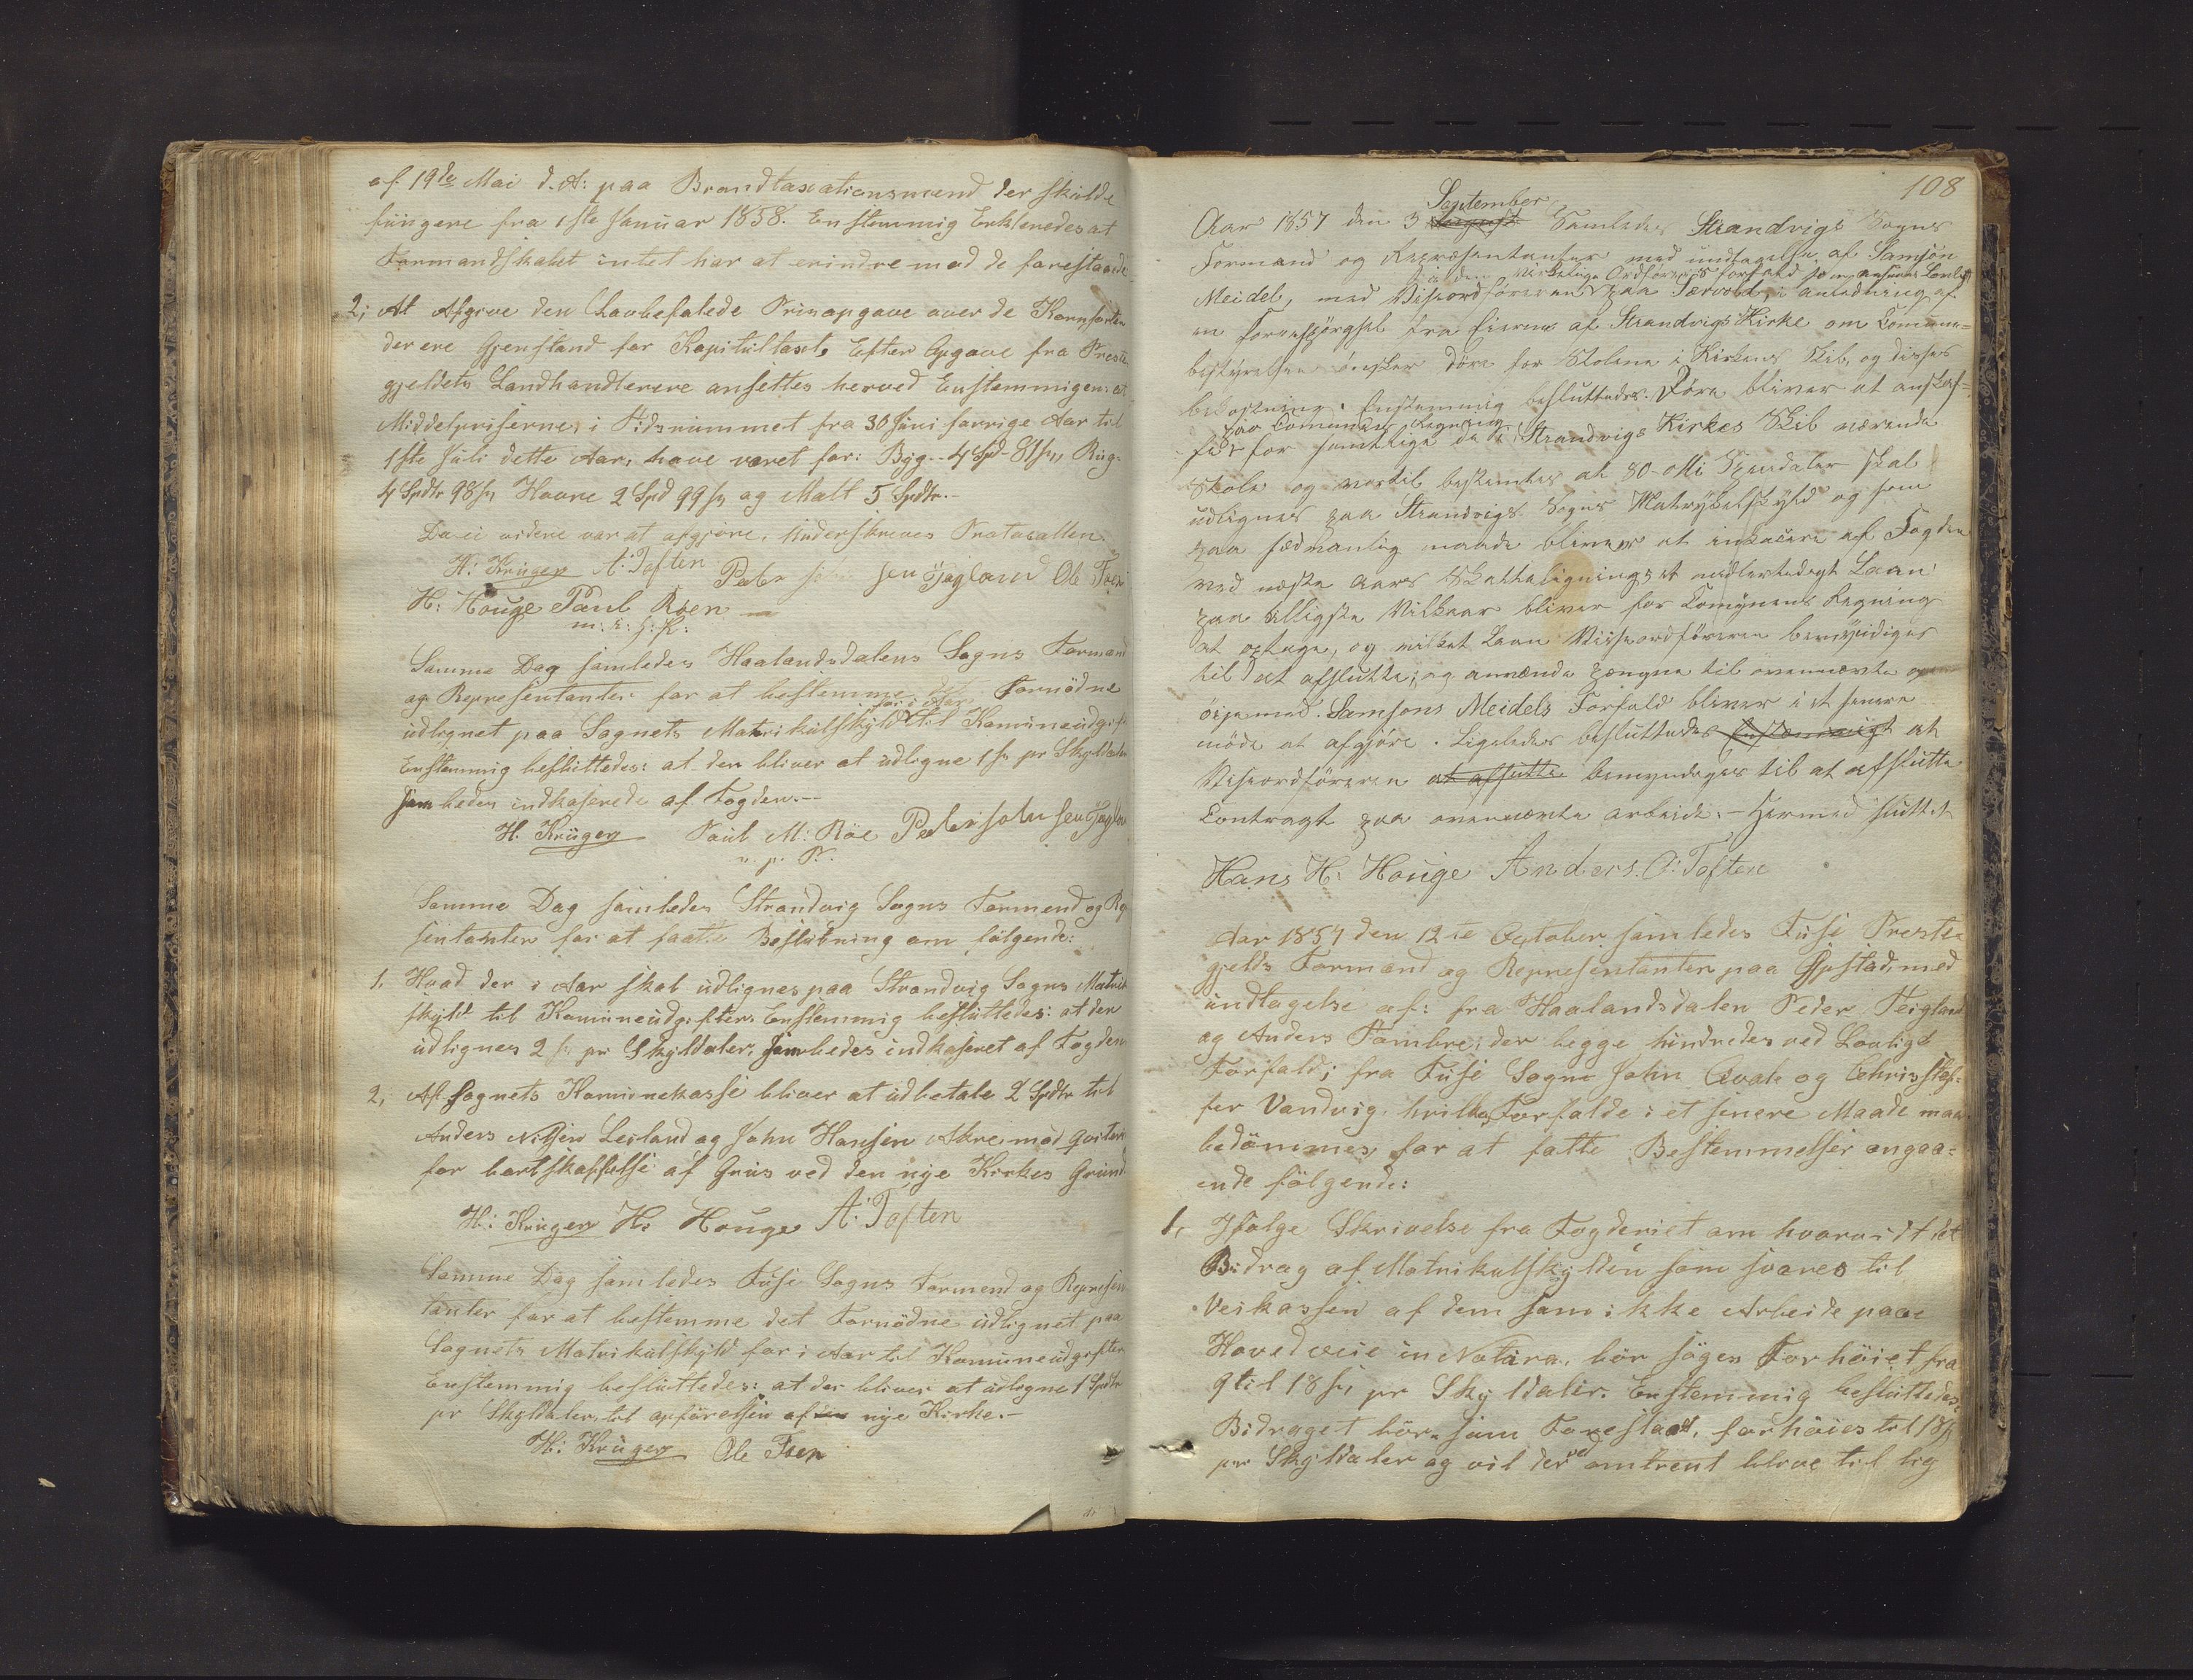 af 19de Mai d. A: paa Brandtaxationsmænd der skulde
fungere fra 1ste Januar 1858. Enstemmig Erklæredes at
Formandskabet intet har at erindre mod de forestaaende
2; At Afgive den Lovbefalede Prisopgave over de Kornsorter
der ere Gjenstand for Kapitultaxt. Efter Opgave fra Præste
gjeldets Landhandlerere ansettes herved Enstemmigen: at
Middelpriserne, i Tidsrummet fra 30 Juni forrige Aar til
1ste Juli dette Aar, have været for: Byg - 4 Spd - 81 s, Rug-
4 Spdlr 98 s, Havre 2 Spd 99 s, og Malt 5 Spdlr.-
Da ei videre var at afgjøre, underskreves Protocollen.
H: Krüger A: Toften Peter Johnsen Tejgland Ole Tveen
H: Houge Paul Röen
m: p: P:
Samme Dag samledes Haalandsdalens Sogns Formænd
og Representanter for at bestemme det Fornödne
for i Aar
udlignet paa Sognets Matrikulskyld til Kommuneudgifter
Enstemmig besluttedes: at der bliver at udligne 1 s. pr Skylddaler
som bedes indkaserede af Fogden.-
H. Krüger Paul M: Röe Peter Johnsen Tejgland
m. p. P.
Samme Dag samledes Strandvig Sogns Formend og Re
sentanter for at fatte Beslutning om fölgende:
1, Hvad der i Aar skal udlignes paa Strandvig Sogns Matrik
skyld til Kommuneudgifter. Enstemmig besluttedes: at der
udlignes 2 s. pr Skylddaler, som bedes indkaseret af Fogden
2, Af Sognets Kommunekasse bliver at udbetale 2 Spdlr til
Anders Nilsen Leiland og John Hansen Økre mod Qvitering
for bortskaffelse af Grus ved den nye Kirkes Grund
H: Krüger H: Houge A: Toften
Samme Dag samledes Fuse Sogns Formend og Represen
tanter for at bestemme det Fornödne udlignet paa
Sognets Matrikulskyld for i Aar til Kommuneudgifter
Enstemmig besluttedes: at der bliver at udligne 1 Spdlr
pr Skylddaler, til opførelsen af en nye Kirke.-
H: Krüger Ole Tveen
108
September
Aar 1857 den 3 August Samledes Strandvigs Sogns
Formænd og Repræsentanter med undtagelse af Samson
i den virkelige Ordførers forfald som ansees Lovligt
Meidel, med Viseordföreren paa Særvold, i anledning af
en forespörgsel fra Eieren af Strandvigs Kirke om Comune-
bestyrelsen önsker Döre for Stolene i Kirkens Skib, og disses
bekostning. Enstemmig besluttedes. Döre bliver at anskaf-
for Comunens Regning
fes for samtlige de i Strandvigs Kirkes Skib værende
Stole og vertil bestemtes at 80-otti Speciedaler skal
udlignes paa Strandvigs Sogns Matrykelskyld og som
paa sædvanlig maade bliver at inkacere af Fogden
ved næste Aars Skatteligning, et midlertidigt Laan
paa billigste Vilkaar bliver for Comynens Regning
at optage, og vilket Laan Viseordföreren bemyndiges
til at afslutte, og anvænde pængene til ovennævnte
öiemed. Samsons Meidels Forfald bliver i et senere
möde at afgjöre. Ligeledes besluttedes Enstemmigt at
Viseordföreren at afslutte bemyndiges til at afslutte
Contragt paa ovennævnte arbeide. - Hermed sluttet
Hans H: Houge Anders. O: Toften
Aar 1857 den 12te October samledes Fuse Preste-
gjelds Formænd og Representanter paa Gjestad, med
undtagelse af: fra Haalandsdalen Peder Teigland
og Anders Tombre, der begge hindredes ved Lovligt
Forfald; fra Fuse Sogn John Qvale og Christof-
fer Vandvig, hvilkes Forfalde i et senere Maade maa
bedömmes, for at fatte Bestemmelser angaa-
ende fölgende:
1, Ifölge Skrivelse fra Fogderiet om hvorvidt det
Bidrag af Matrikulskylden som svares til
Veikassen af dem som ikke Arbeide paa
Hovedveie in Natura, bör söges Forhöiet fra
9 til 18 s, pr Skylddaler. Enstemmig besluttedes:
Bidraget bör som Foreslaaet, forhöies til 18 s
ved
pr Skylddaler og vil der omtrent blive til lig